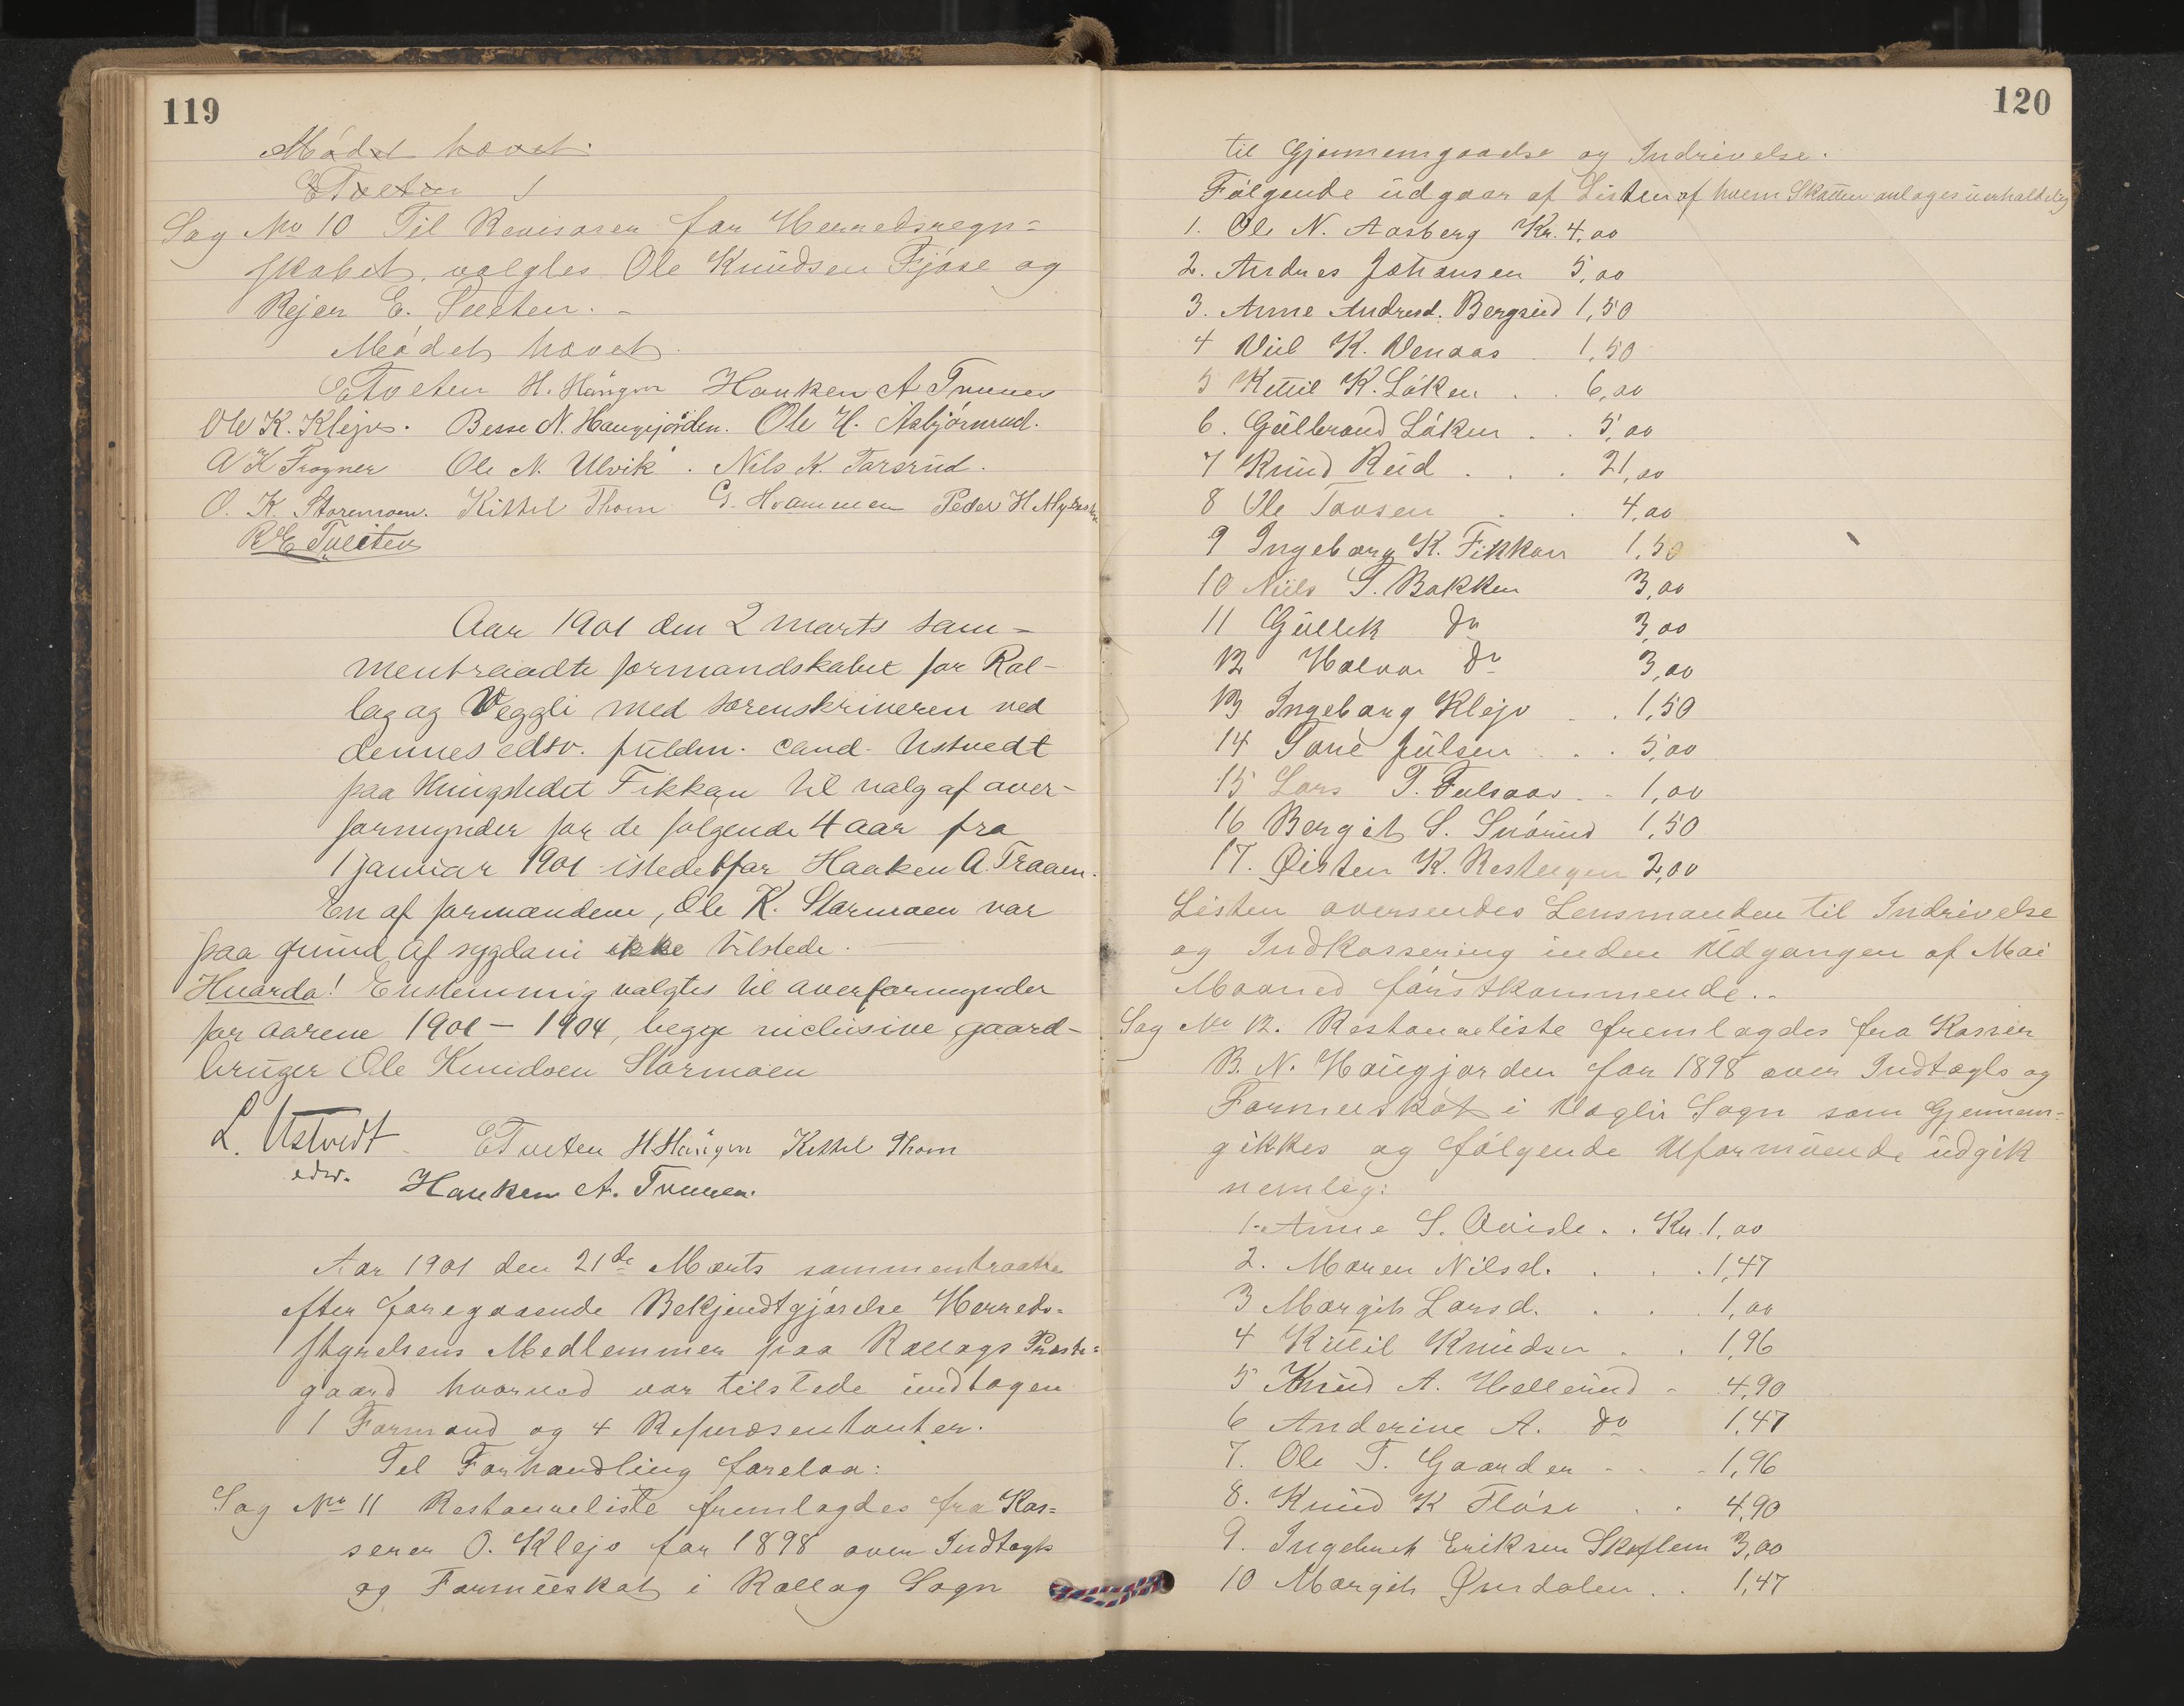 119
Mødet hævet.
ETveten
Sag No 10 Til Revisorer for Herredsregn=
skabet, valgtes Ole Knudsen Fjøse og
Rejer E. Tveten. -
Mødet hævet.
ETveten H. Haugen Haaken A Traaen
Ole K. Klejve. Besse N. Haugjorden. Ole H. Asbjørnrud.
A K Frogner Ole N. Ulvik. Nils K. Tarsrud.
O. K. Stormoen. Kittel Thom G. Hvammen Peder H
R E Tveiten
Aar 1901 den 2 marts sam-
mentraadte formandskabet for Rol-
lag og Veggli med sorenskriveren ved
dennes edsv. fuldm. cand. Ustvedt
paa thingstedet Fikkan til valg af over-
formynder for de følgende 4 aar fra
1 januar 1901 istedetfor Haaken A. Traaen.
En af formændene, Ole K. Stormoen var
paa grund af sygdom ikke tilstede.
Hvorda! Enstemmig valgtes til overformynder
for aarene 1901 - 1904, begge inclusive, gaard-
bruger Ole Knudsen Stormoen
L. Ustvedt ETveten H Haugen Kittel Thom
edsv. Haaken A. Traaen.
Aar 1901 den 21de Marts sammentraadte
efter foregaaende Bekjendtgjørelse Herreds=
styrelsens Medlemmer paa Rollags Præste=
gaard hvorved var tilstede undtagen
1 Formand og 4 Repræsentanter.
Til Forhandling forelaa:
Sag No 11 Restanceliste fremlagdes fra Kas=
serer O. Klejv for 1898 over Indtægts
og Formueskat i Rollag Sogn
120
til Gjennemgaaelse og Indrivelse.
Følgende udgaar af Listen af hvem Skatten antages uerholdelig
1. Ole N. Aasberg Kr. 4,00
2. Andres Johansen 5,00
3. Anne Andresd. Bergsrud 1,50
4 K. Venaas . 1,50
5 Kittil K. Løken . . 6,00
6. Gulbrand Løken . . 5,00
7 Knud Rud . . . 21,00
8 Ole Tovsen . . 4,00
9 Ingeborg K. Fikkan 1,50
10 Niels T. Bakken 3,00
11 Gullik do 3,00
12 Halvor do 3,00
13 Ingeborg Klejv . . 1,50
14 Tone Julsen . . 5,00
15 Lars T. . . 1,00
16 Bergit S. 1,50
17. Øisten K. 2,00
Listen oversendes Lensmanden til Indrivelse
og Indkassering inden Udgangen af Mai
Maaned førstkommende..
Sag No 12. Restanceliste fremlagdes fra Kasser
B. N. Haugjorden for 1898 over Indtægts og
Formueskat i Veglie Sogn som Gjennem=
gikkes og følgende Uformuende udgik
nemlig:
1. Anne S. . . Kr. 1,00
2. Maren Nilsd. . . . 1,47
3 Margit Larsd. . . . 1,00
4 Kittil Knudsen . . 1,96
5 Knud A. Hellerud . 4,90
6 Anderine A. do 1,47
7. Ole T. Gaarden - - - 1,96
8. Knud K Fløse . . 4,90
9. Ingebret Eriksen Skoflem 3,00
10 Margit . . 1,47